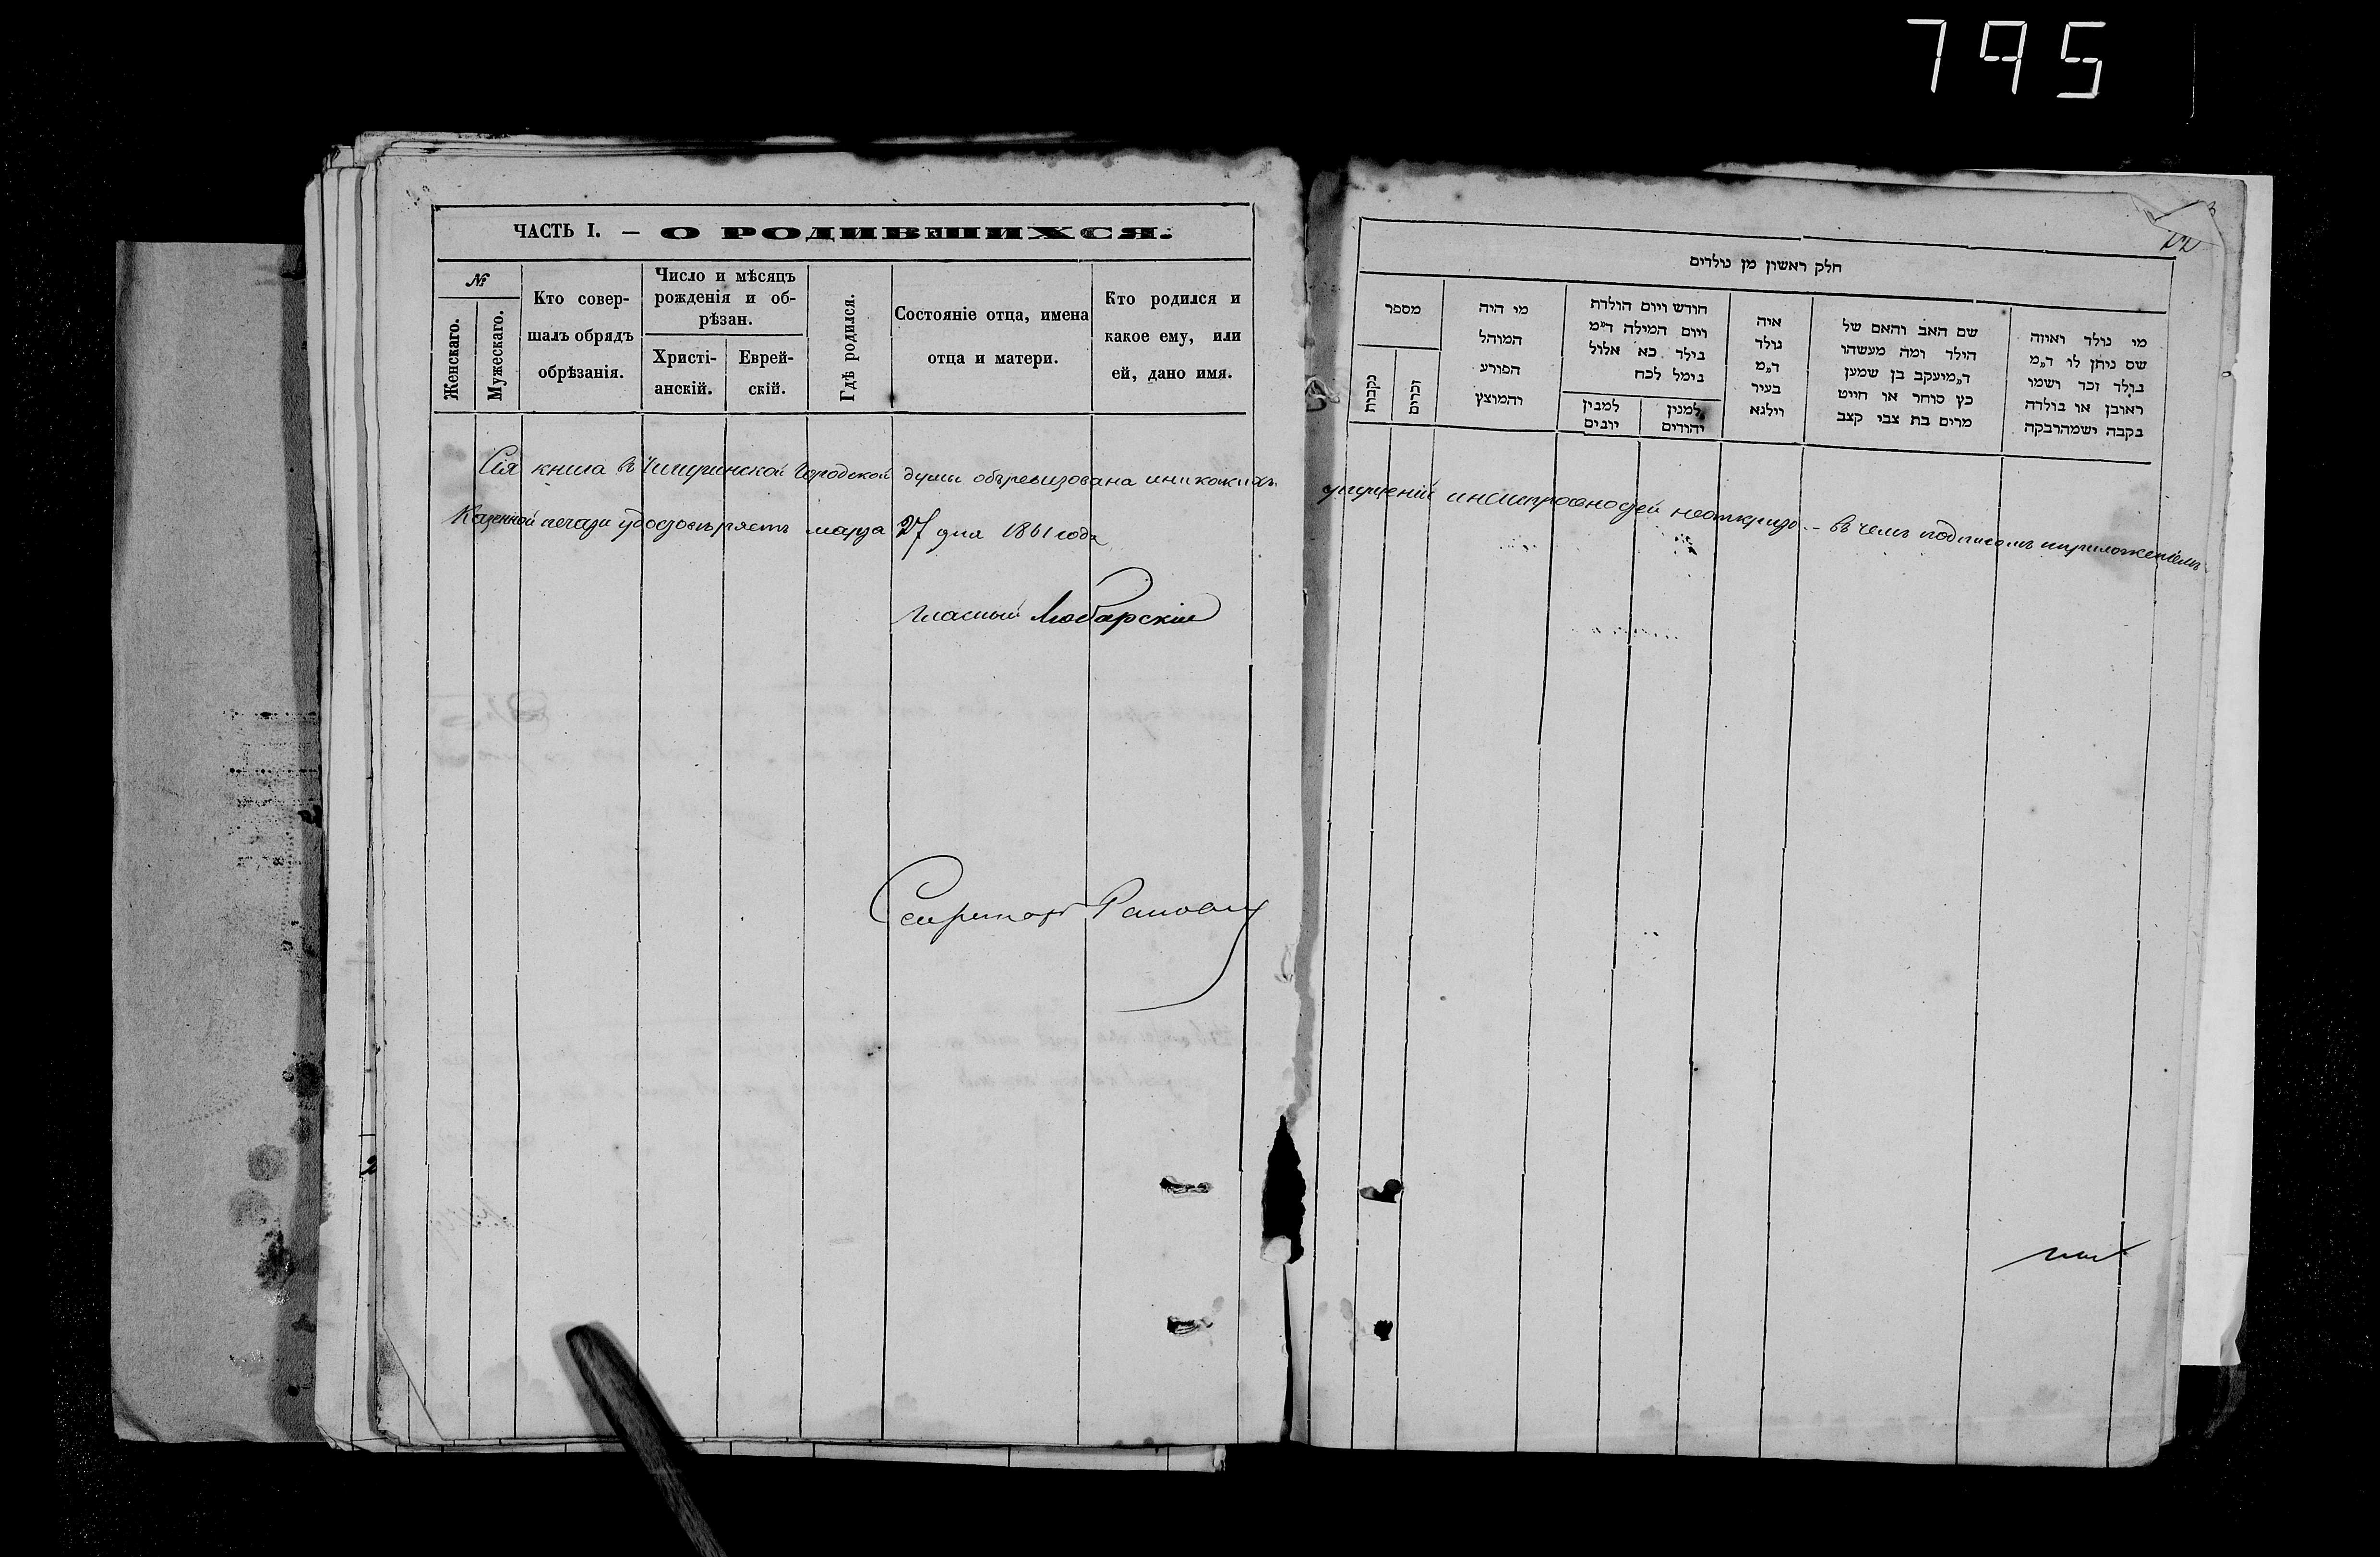 795
ЧАСТЬ I. — О РОДИВШИХСЯ.
№
Женскаго.
Мужескаго.
Кто совер-
шалъ обрядъ
обрѣзанія.
Число и мѣсяцъ
рожденія и об-
рѣзан.
Христі-
анскій.
Еврей-
скій.
Гдѣ родился.
Состояніе отца, имена
отца и матери.
Кто родился и
какое ему, или
ей, дано имя.
Сія книга въ Чигиринской Городской думы обревизована и никакихъ
Казенной печати удостовѣряетъ марта 27 дня 1861 года
гласный Любарскій
Секретарь
חלק ראשון מן נולדים
מספר
נקבות
זכרים
מי היה
המוהל
הפורע
והמוצץ
חודש ויום הולדת
ויום המילה ד״מ
בילד כא אלול
בימל לכח
למנין
יונים
למנין
יהודים
איה
נולד
ד״מ
בעיר
וילנא
שם האב והאם של
הילד ומה מעשהו
ד״מ יעקב בן שמען
כץ סוחר או חייט
מרים בת צבי קצב
מי נולד ואיזה
שם ניתן לו ד״מ
נולד זכר ושמו
ראובן או נולדה
נקבה ושמה רבקה
упущеній и неисправностей не открыто — въ чемъ подписомъ и приложеніемъ